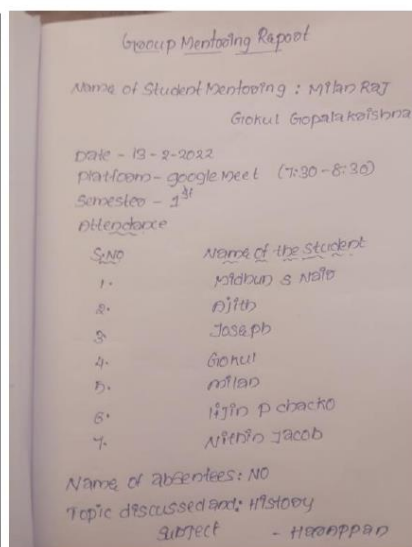 Group Mentoring Raport
Name of Student Mentoring : Milan Raj
Gokul Gopalakrishna
Date - 13-2-2022
platform - google Meet (7:30 - 8:30)
Semester - 1st
Attendance
S.NO Name of the Student
1. Midhun S Nair
2. Ajith
3. Joseph
4. Gokul
5. milan
6. lijin p chacko
7. Nithin Jacob
Name of absentees: NO
Topic discussed and: History
Subject - Harappan